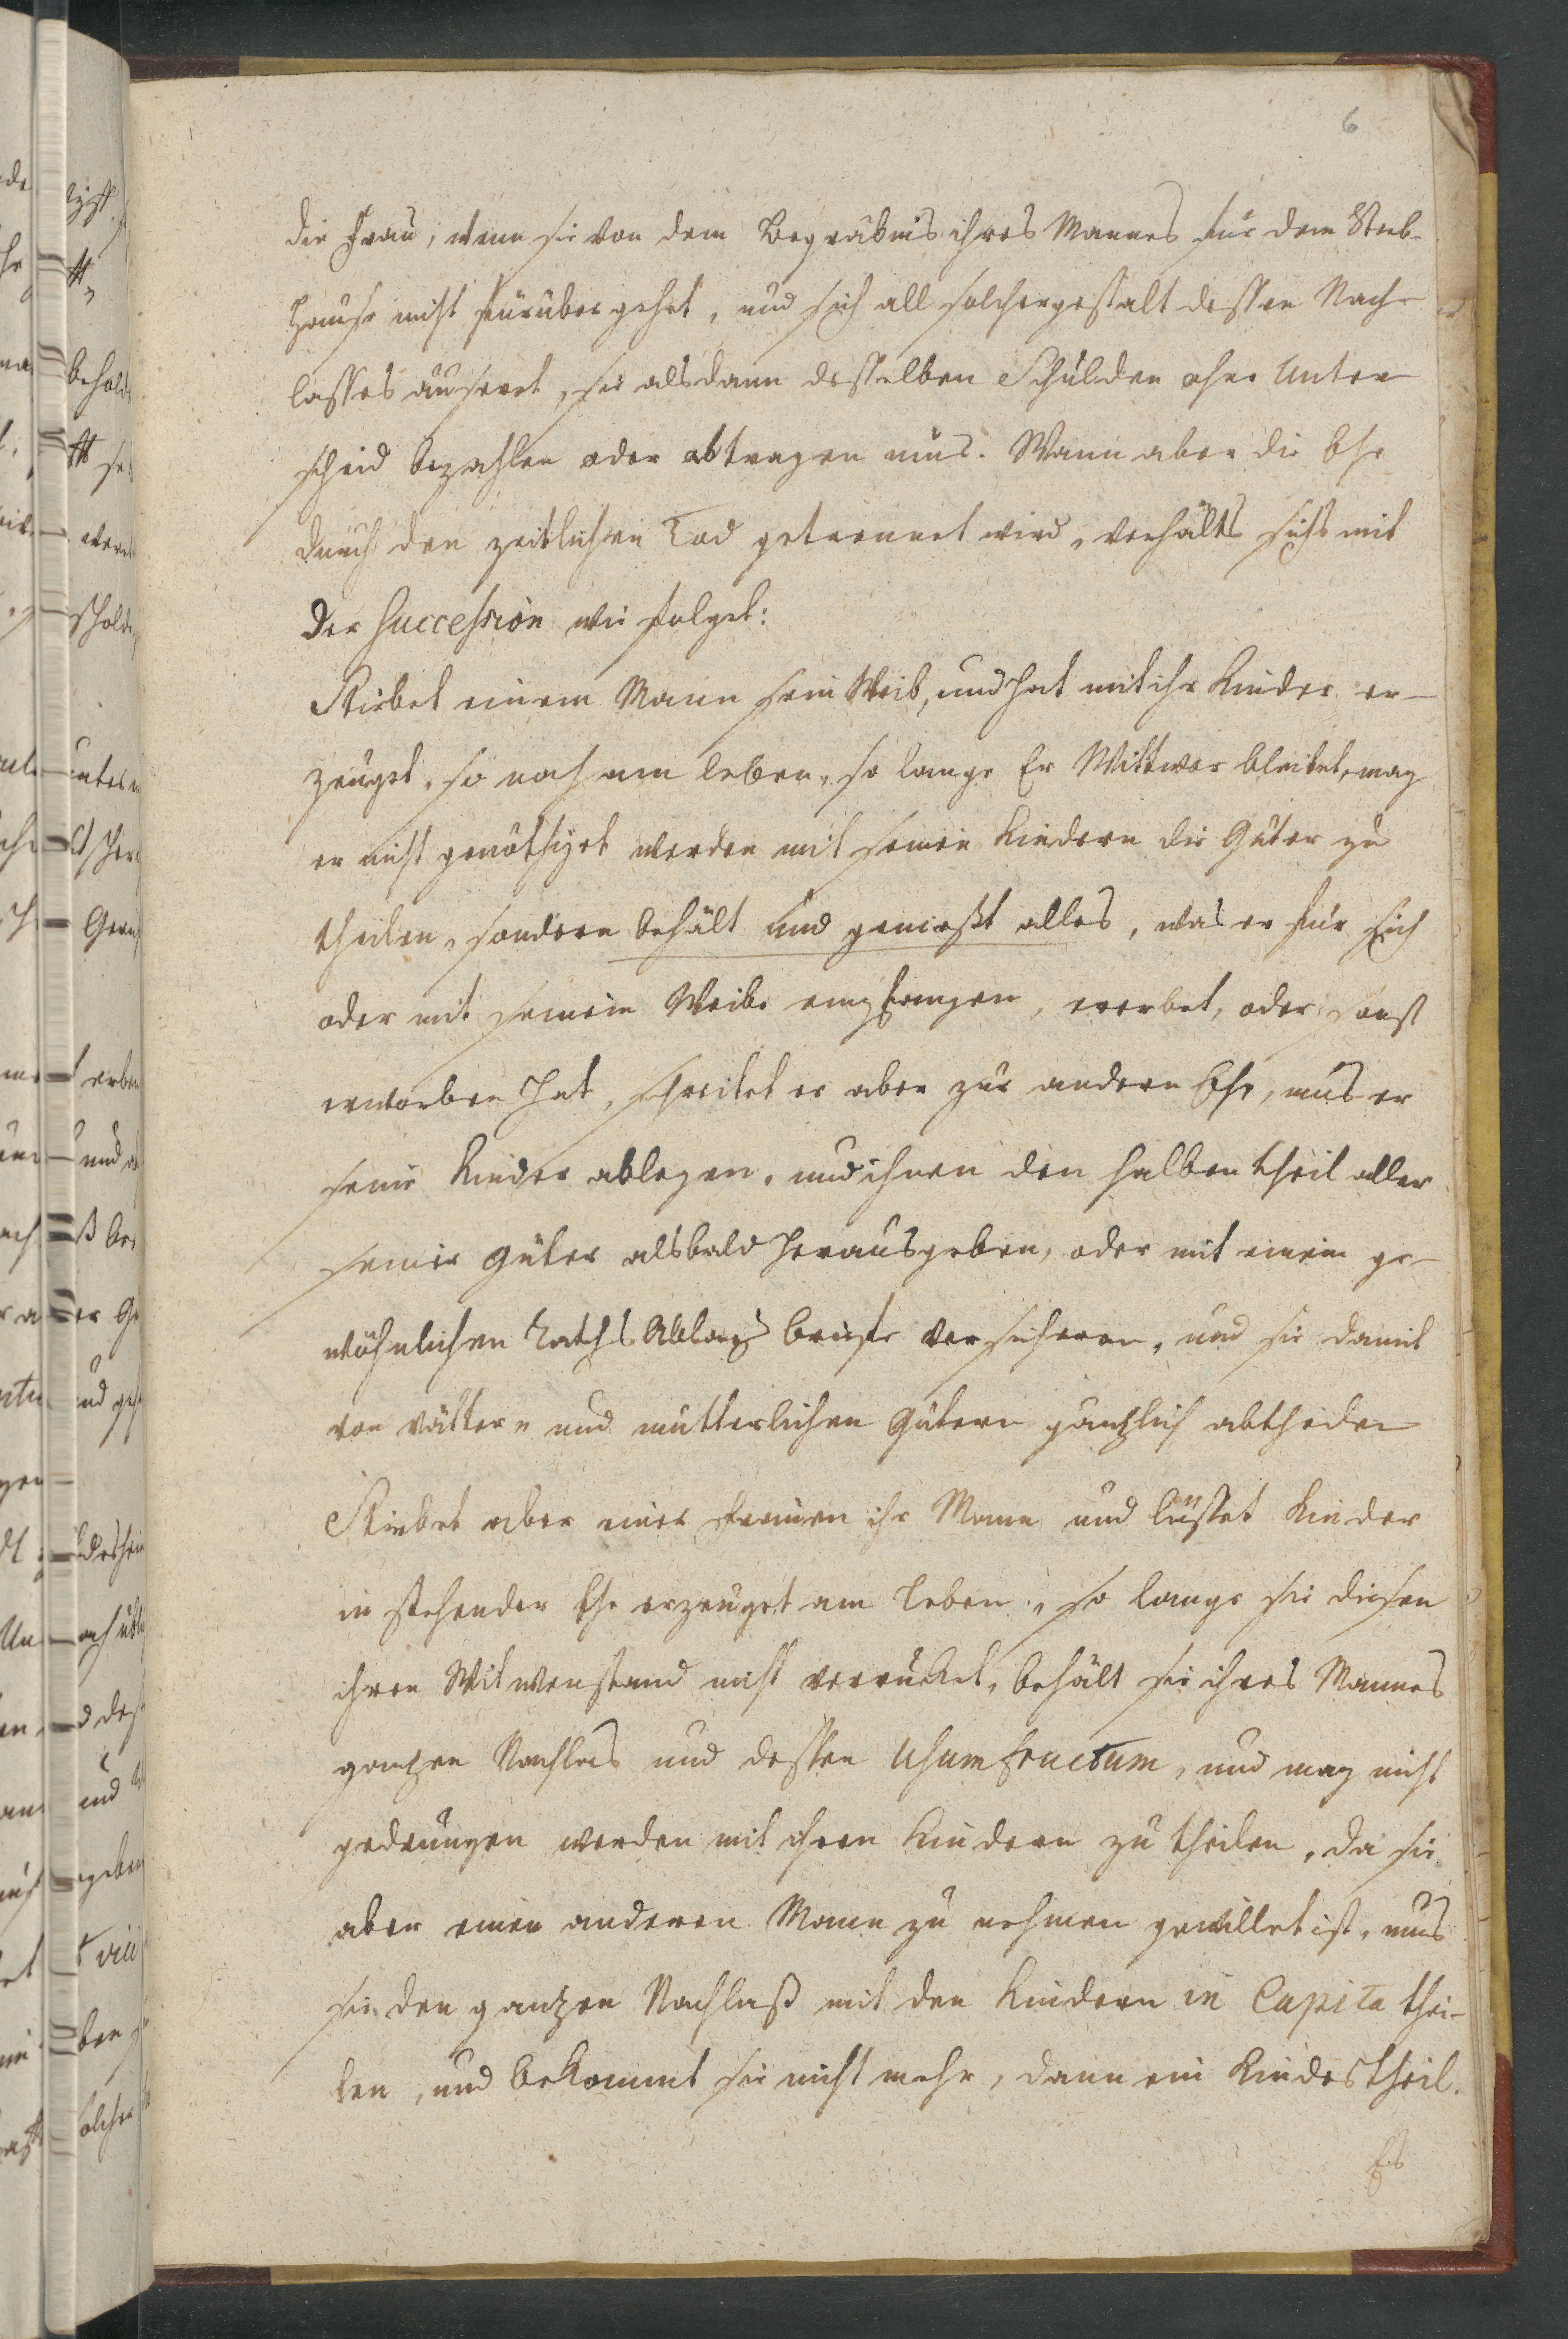 6
die Frau, wenn sie von dem Begräbnis ihres Mannes für dem Sterb-
hause nicht fürüber gehet, und sich all solchergestalt dessen Nach-
lasses äuseret, sie alsdann desselben Schulden ohne Unter
scheid bezahlen oder abtragen mus. Wann aber die Ehe
durch den zeitlichen Tod getrennet wird, verhälts sichs mit
der Succession wie folget:
Stirbet einem Mann sein Weib, und hat mit ihr Kinder er-
zeuget, so noch am leben, so lange Er Wittwer bleibet, mag
er nicht genöthiget werden mit seinen Kindern die Güter zu
theilen, sondern behält und geniesst alles, was er für sich
oder mit seinem Weibe empfangen, ererbet, oder sonst
erworben hat, schreitet er aber zur andern Ehe, mus er
seine Kinder ablegen, und ihnen den halben theil aller
seiner Güter alsbald herausgeben, oder mit einem ge-
wöhnlichen Raths Ablags briefe versicheren, und sie damit
von vätter- und mutterlichen Gütern gäntzlich abtheilen
Stirbet aber einer Frauen ihr Mann und lässet Kinder
in stehender Ehe erzeuget am leben, so lange sie diesen
ihren Witwenstand nicht verrücket, behält sie ihres Mannes
gantzen Nachlas und dessen Usumfructum, und mag nicht
gedrungen werden mit ihren Kindern zu theilen, da sie
aber einen anderen Mann zu nehmen gewillet ist, mus
sie den gantzen Nachlaß mit den Kindern in Capita thei-
len, und bekommt sie nicht mehr, dann ein Kindestheil.
Es